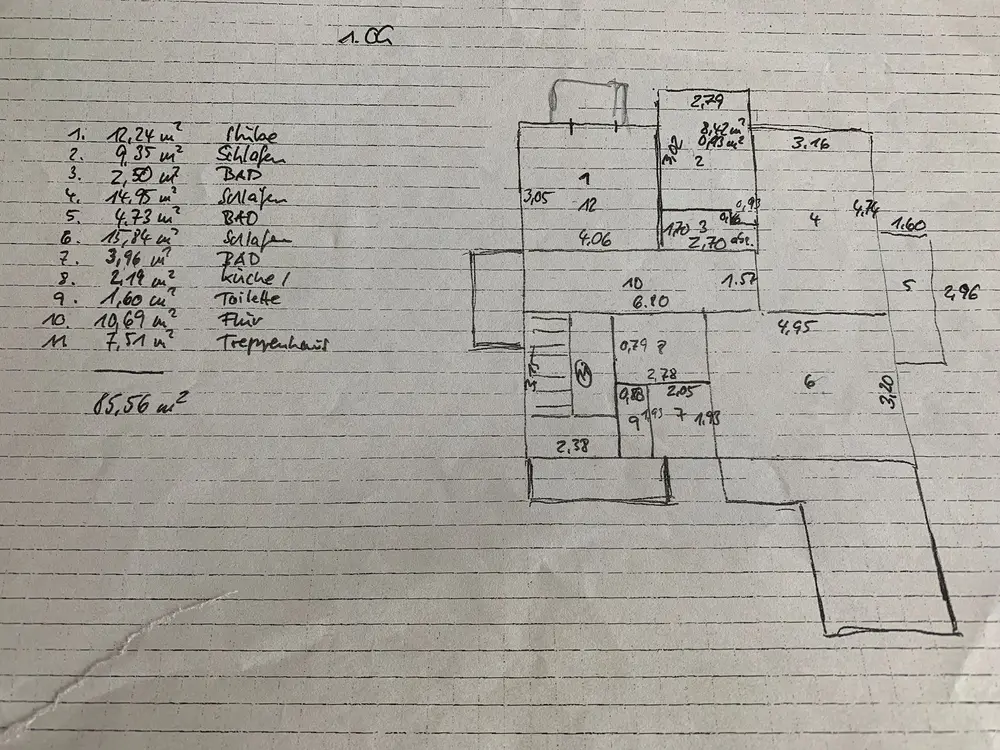 1. OG
1. 12,24 m² Stube
2. 9,35 m² Schlafen
3. 2,50 m² BAD
4. 14,95 m² Schlafen
5. 4,73 m² BAD
6. 15,84 m² Schlafen
7. 3,96 m² BAD
8. 2,19 m² Küche /
9. 1,60 m² Toilette
10. 10,69 m² Flur
11. 7,51 m² Treppenhaus
85,56 m²
2,79
8,42 m²
0,93 m²
3,02
2
3,16
1
3,05
12
4.06
0,93
1,70 3
2,70 abz.
4
4,74
1,60
5
2,96
10
6.80
1.57
4,95
6
3,20
0,79 8
2,78
0,88
2,05
9
1,93
7
1,93
2,38